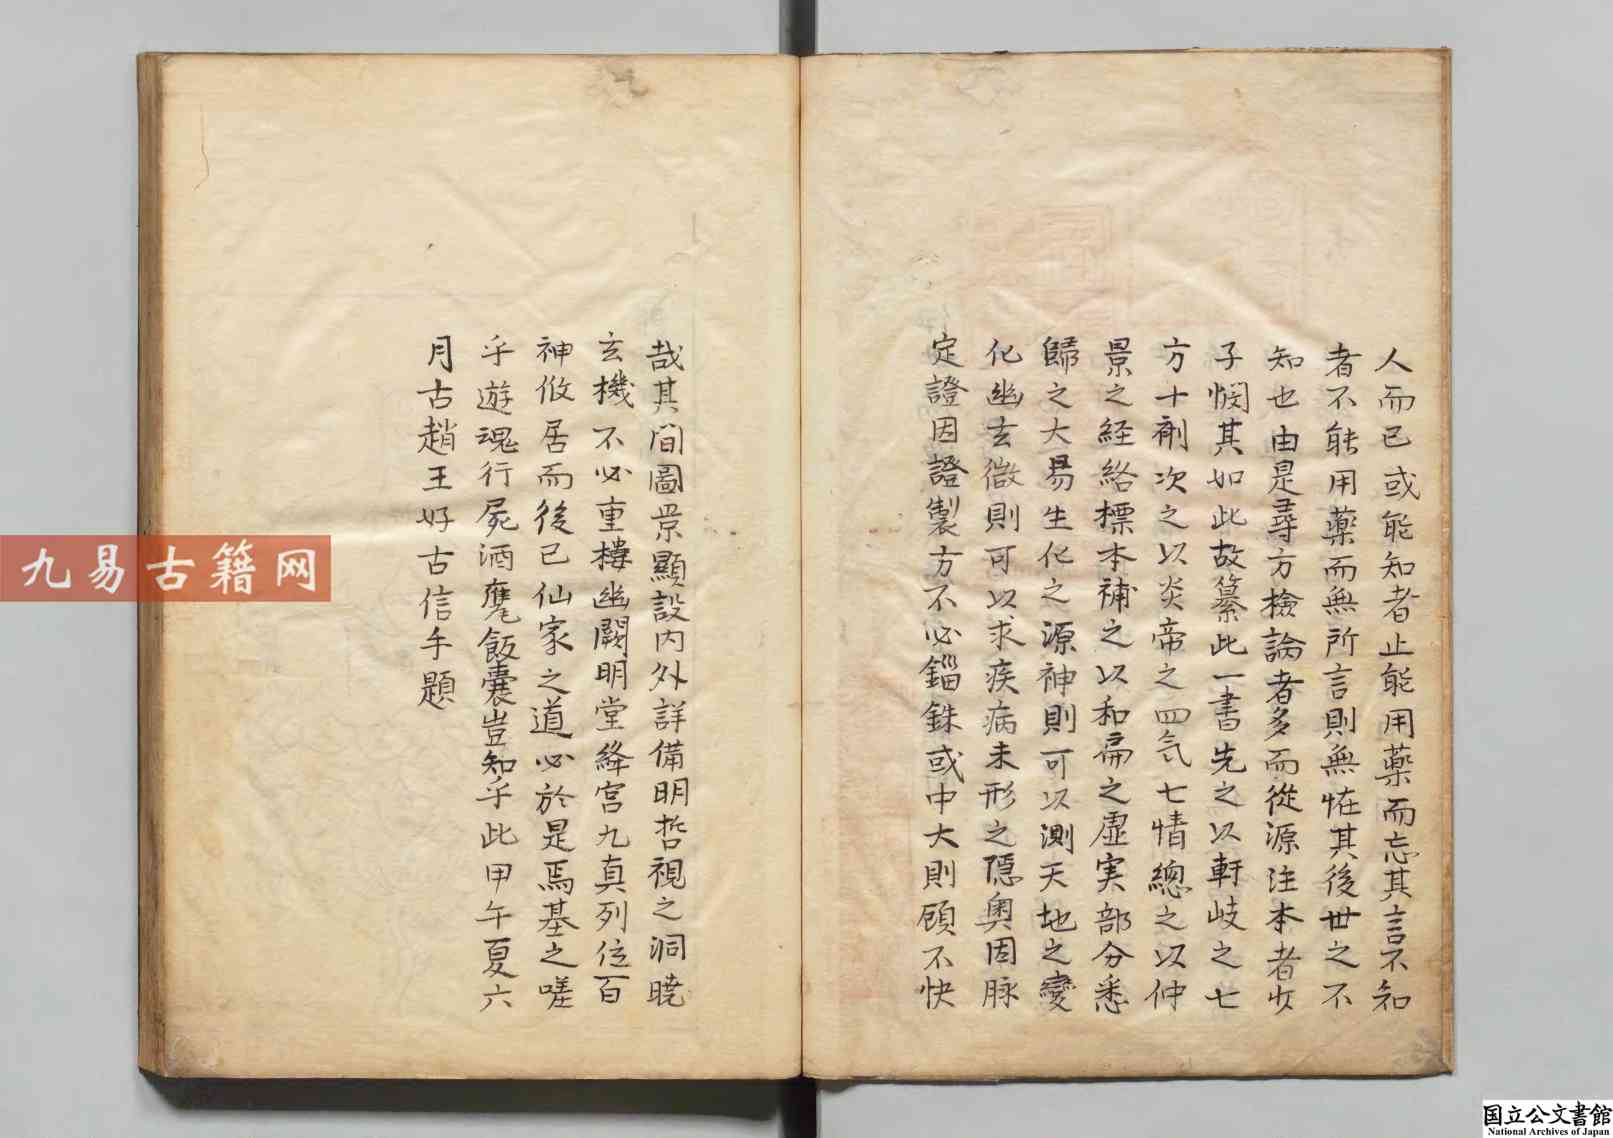 人而已或能知者止能用藥而忘其言不知
者不能用藥而無所言則無恠其後世之不
知也由是尋方檢論者多而從源注本者少
子憫其如此故纂此一書先之以軒岐之七
方十劑次之以炎帝之四氕七情總之以仲
景之経絡標本補之以和扁之虛実部分悉
歸之大易生化之源神則可以測天地之變
化幽玄微則可以求疾病未形之隠奥因脉
定證因證製方不必錙銖或中大則顧不快
哉其間圖景顯設內外詳備明哲視之洞曉
玄機不必重樓幽闕明堂絳宮九真列位百
神攸居而後已仙家之道必於是焉基之嗟
乎遊魂行屍酒甕飯囊豈知乎此甲午夏六
月古趙王好古信手題
九易古籍网
国立公文書館
National Archives of Japan